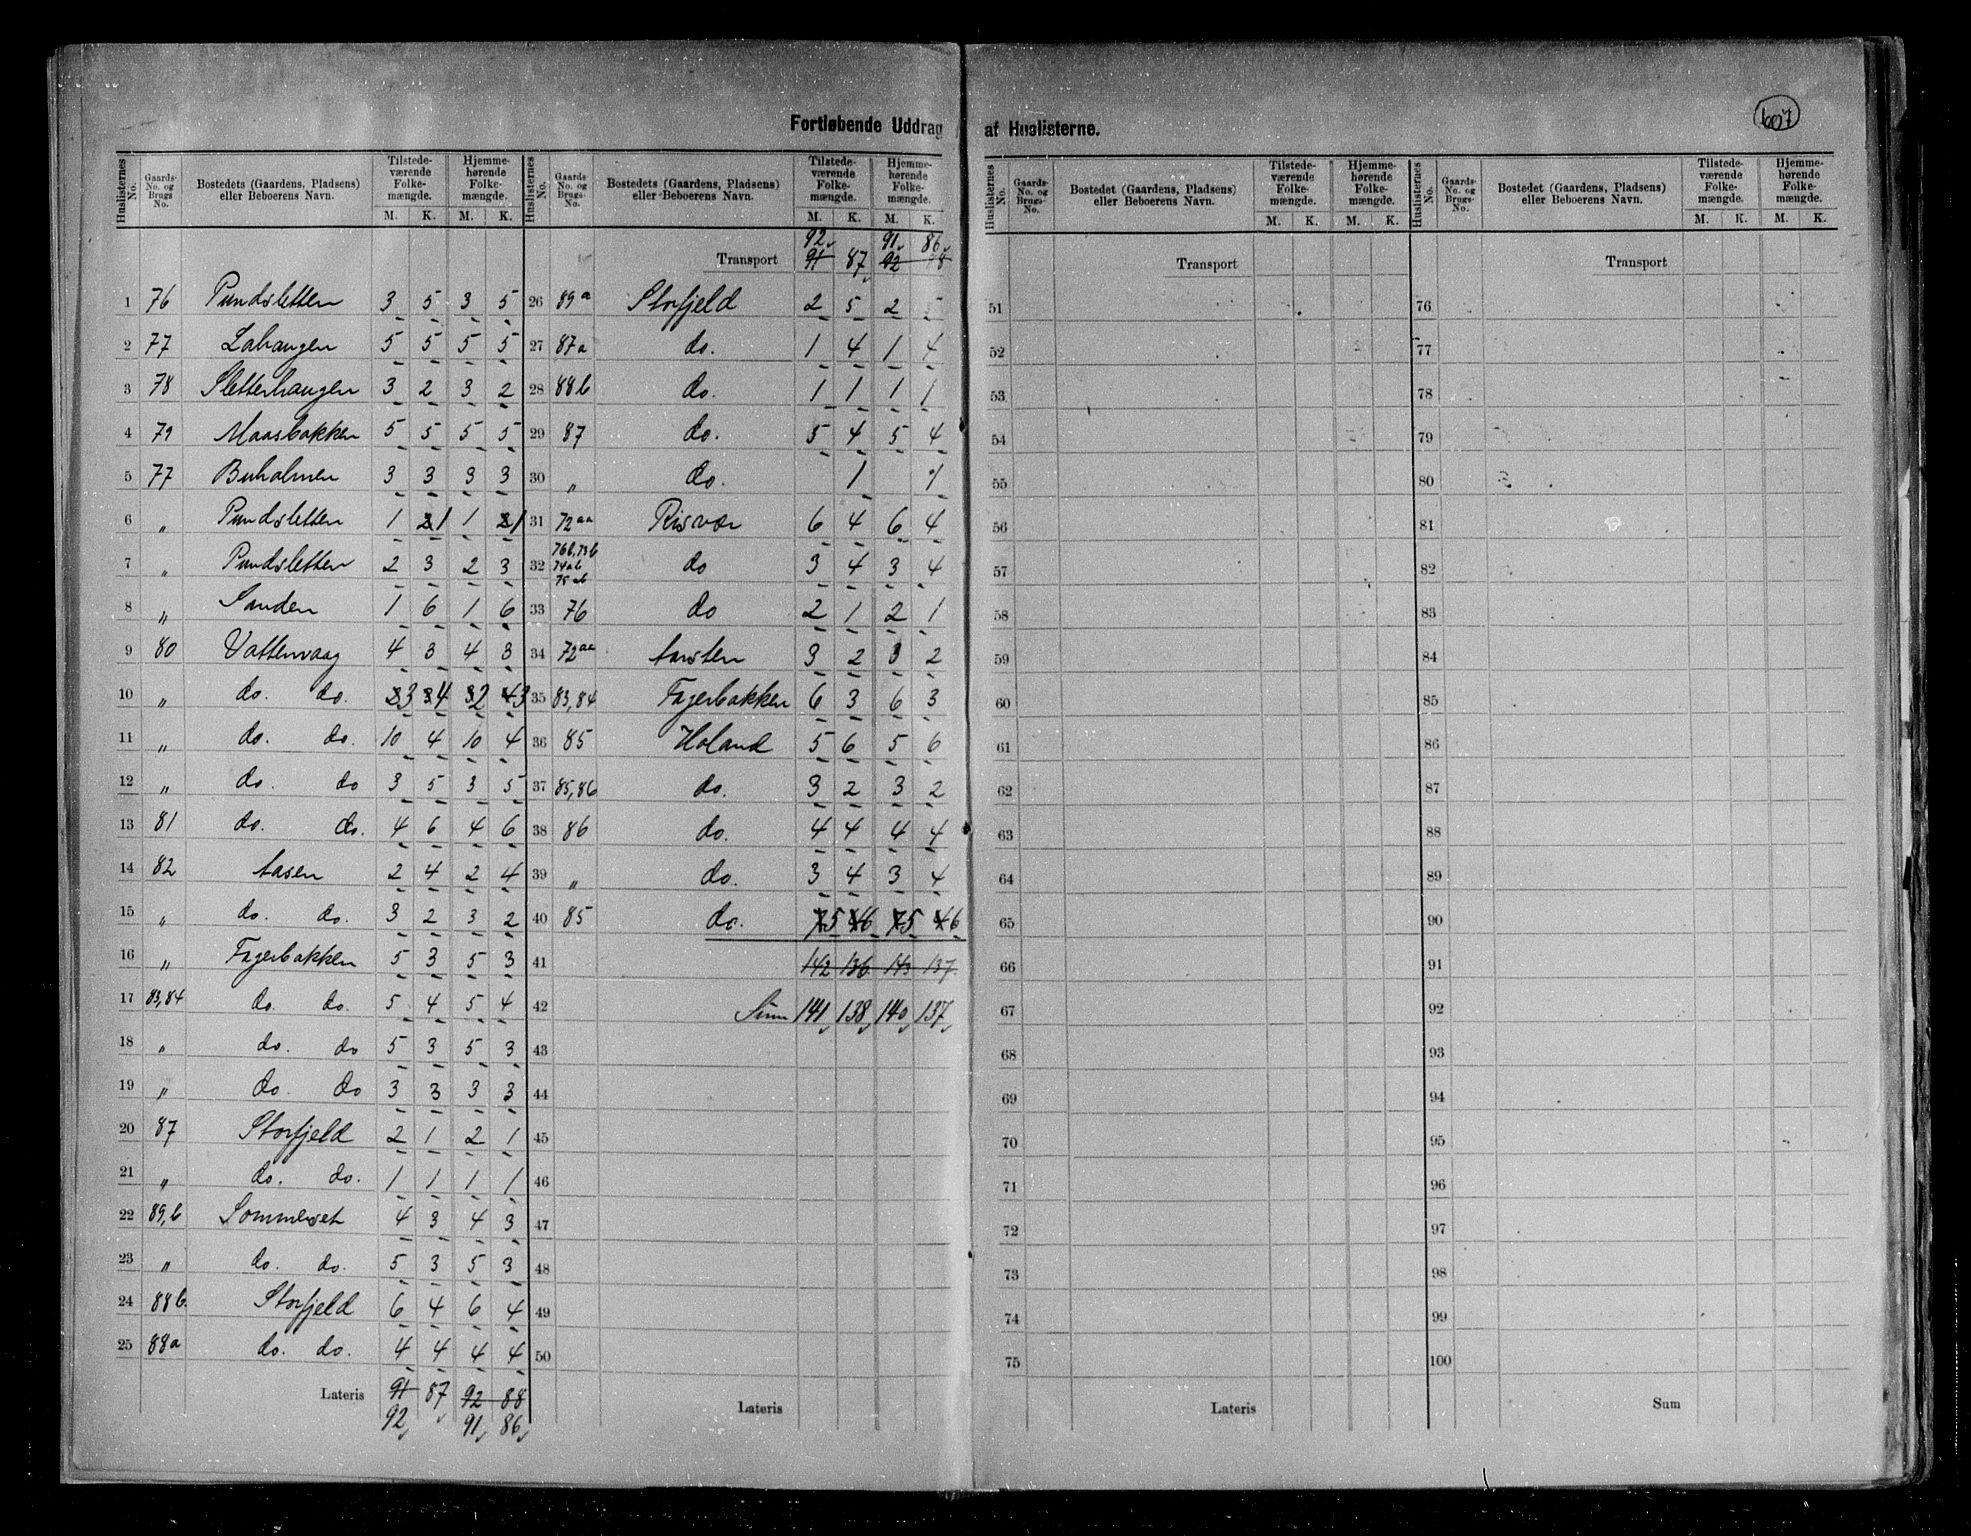 607
Fortløbende Uddrag af Huslisterne.
Huslisternes No. | Gaards-No. og Brugs No. | Bostedets (Gaardens, Pladsens) eller Beboerens Navn. | Tilstedeværende Folkemængde. M. K. | Hjemmehørende Folkemængde. M. K.
1 76 Pundsletten 3 5 3 5
2 77 Labaugen 5 5 5 5
3 78 Sletterhaugen 3 2 3 2
4 79 Maasbakken 5 5 5 5
5 77 Buholmen 3 3 3 3
6 „ Pundsletten 1 1 1 1
7 „ Pundsletten 2 3 2 3
8 „ Sanden 1 6 1 6
9 80 Vattenvaag 4 3 4 3
10 „ do. do. 3 4 2 3
11 „ do. do. 10 4 10 4
12 „ do. do 3 5 3 5
13 81 do. do. 4 6 4 6
14 82 Aasen 2 4 2 4
15 „ do. do. 3 2 3 2
16 „ Fagerbakken 5 3 5 3
17 83,84 do. do. 5 4 5 4
18 „ do. do 5 3 5 3
19 „ do. do 3 3 3 3
20 87 Storfjeld 2 1 2 1
21 „ do. do. 1 1 1 1
22 89,b Sommerset 4 3 4 3
23 „ do. do. 5 3 5 3
24 88b. Storfjeld 6 4 6 4
25 88a do. do. 4 4 4 4
Lateris 91 87 92 88
92 91 86
Huslisternes No. | Gaards No. og Brugs-No. | Bostedets (Gaardens, Pladsens) eller Beboerens Navn. | Tilstedeværende Folkemængde. M. K. | Hjemmehørende Folkemængde. M. K.
92 91 86
Transport 91 87 92 88
26 89a Storfjeld 2 5 2 5
27 87a do. 1 4 1 4
28 88b do. 1 1 1 1
29 87 do. 5 4 5 4
30 „ do. 1 1
31 72aa Risvær 6 4 6 4
32 76b,73b 74ab 75ab do 3 4 3 4
33 76 do 2 1 2 1
34 72aa Aarsten 3 2 3 2
35 83,84 Fagerbakken 6 3 6 3
36 85 Holand 5 6 5 6
37 85,86 do. 3 2 3 2
38 86 do. 4 4 4 4
39 „ do. 3 4 3 4
40 85 do. 5 6 5 6
41 142 136 143 137
42 Sum 141 138 140 137
43
44
45
46
47
48
49
50
Lateris
Huslisternes No. | Gaards-No. og Brugs No. | Bostedet (Gaardens, Pladsens) eller Beboerens Navn. | Tilstedeværende Folkemængde. M. K. | Hjemmehørende Folkemængde. M. K.
Transport
51
52
53
54
55
56
57
58
59
60
61
62
63
64
65
66
67
68
69
70
71
72
73
74
75
Lateris
Huslisternes No. | Gaards-No. og Brugs-No. | Bostedet (Gaardens, Pladsens) eller Beboerens Navn. | Tilstedeværende Folkemængde. M. K. | Hjemmehørende Folkemængde. M. K.
Transport
76
77
78
79
80
81
82
83
84
85
86
87
88
89
90
91
92
93
94
95
96
97
98
99
100
Sum